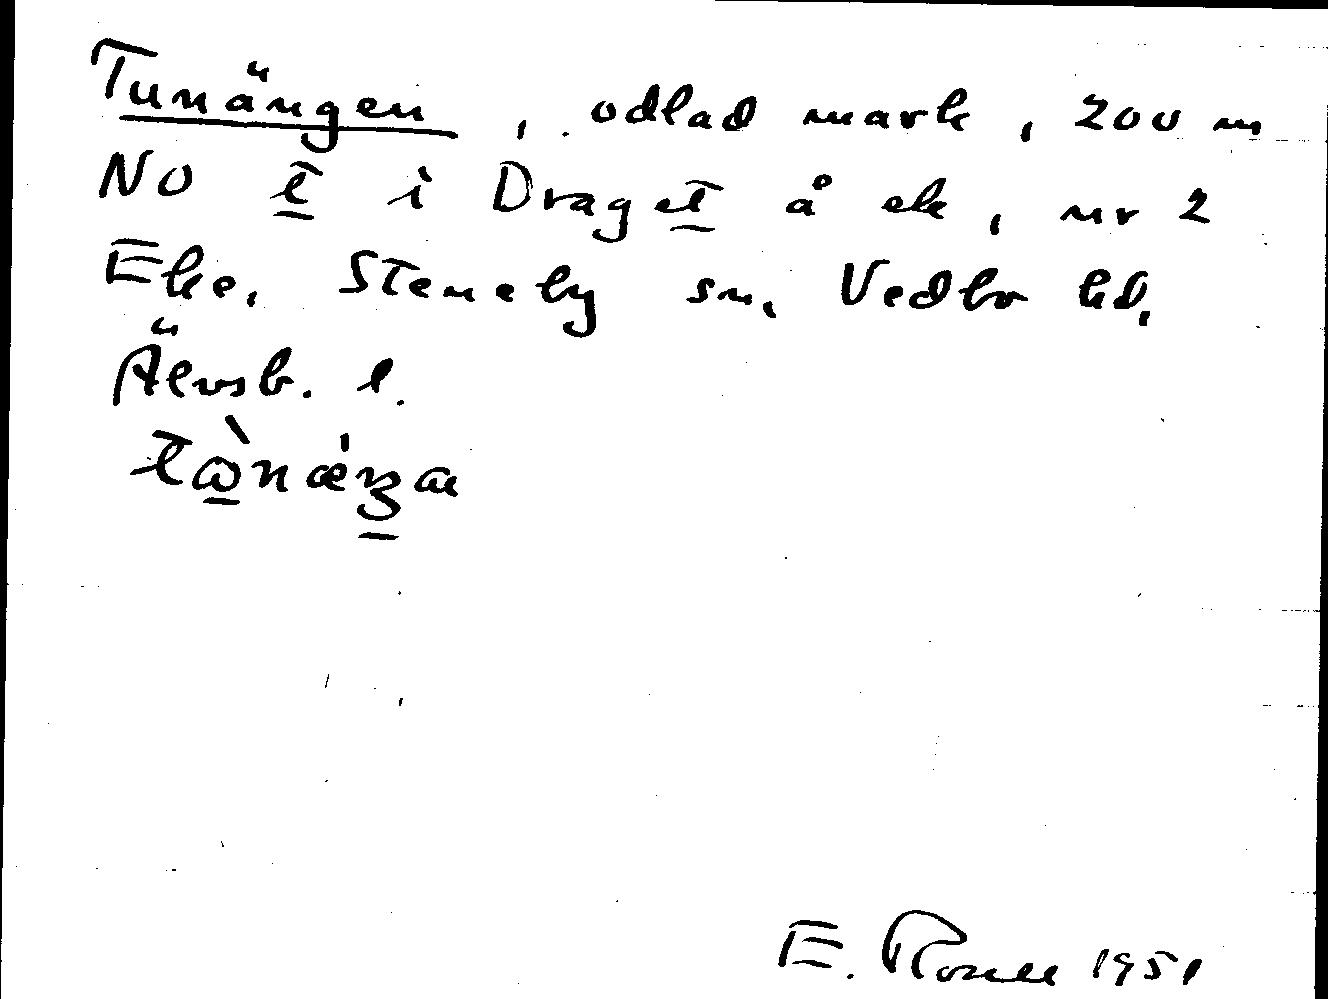 Tunängen, odlad mark, 200 m
NO t i Draget å ek, nr 2
Eke, Steneby sn, Vedbo hd,
Älvsb. l.
E. 1951